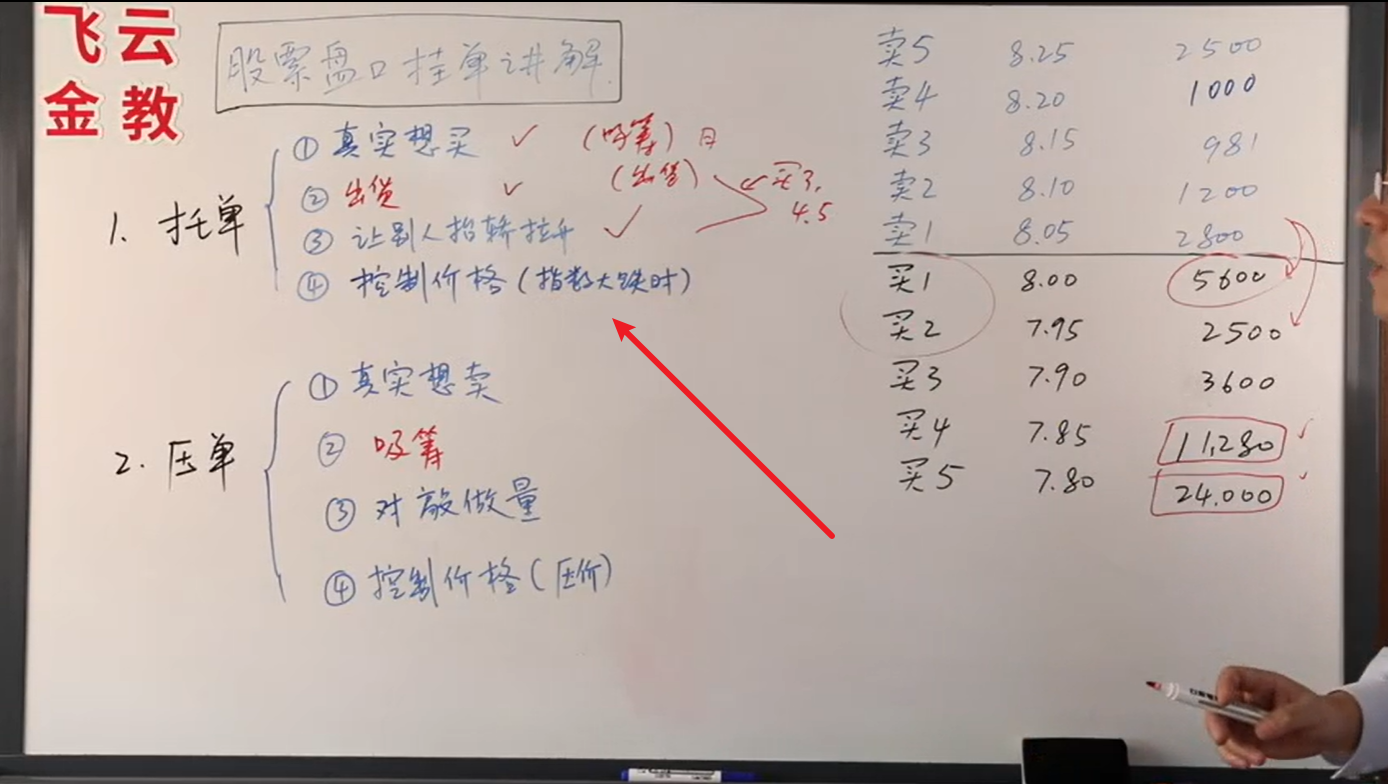 飞云
金教
股票盘口挂单讲解.
1. 托单
① 真实想买 ✓ (吸筹) 日
② 出货 ✓ (出货) 买3,
4.5
③ 让别人抬轿拉升 ✓
④ 控制价格(指数大跌时)
2. 压单
① 真实想卖
② 吸筹
③ 对敲做量
④ 控制价格(压价)
卖5 8.25 2500
卖4 8.20 1000
卖3 8.15 981
卖2 8.10 1200
卖1 8.05 2800
买1 8.00 5600
买2 7.95 2500
买3 7.90 3600
买4 7.85 11,280 ✓
买5 7.80 24.000 ✓